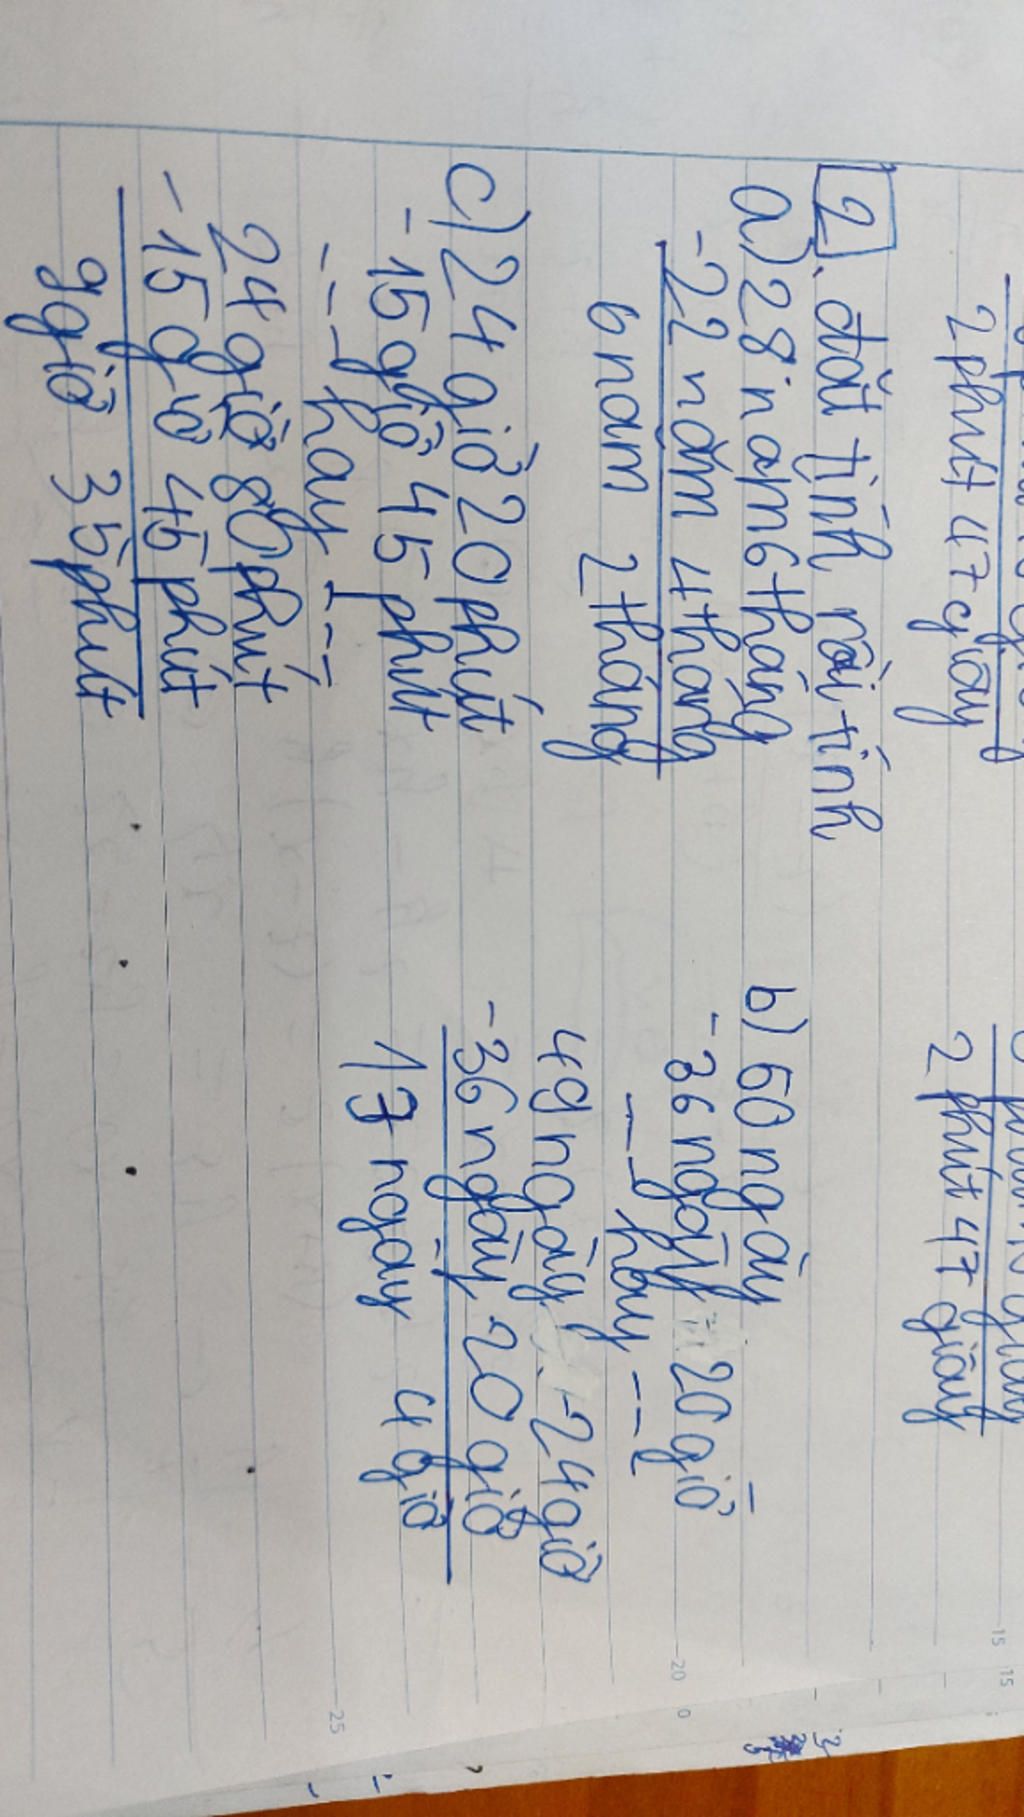 2 phút 47 giây
2 phút 47 giây
2. đặt tính rồi tính
a) 28 năm 6 tháng
- 22 năm 4 tháng
6 năm 2 tháng
b) 50 ngày
- 36 ngày 20 giờ
hay
49 ngày 24 giờ
- 36 ngày 20 giờ
17 ngay 4 giờ
c) 24 giờ 20 phút
- 15 giờ 45 phút
hay
24 giờ 80 phút
- 15 giờ 45 phút
9 giờ 35 phút
15
15
20
0
25